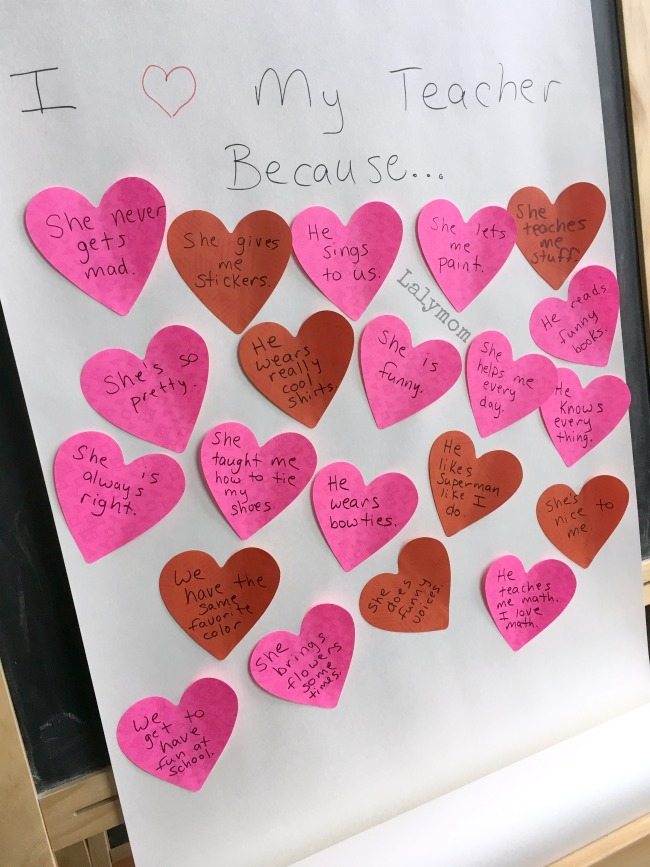 I ♡ My Teacher
Because...
She never
gets
mad.
She gives
me
stickers.
He
sings
to us.
She lets
me
paint.
She
teaches
me
stuff.
Lalymom
He reads
funny
books.
She's so
pretty.
He
wears
really
cool
shirts.
She is
funny.
She
helps me
every
day.
He
knows
every
thing.
She is
always
right.
She
taught me
how to tie
my
shoes
He
wears
bowties.
He
likes
Superman
like I
do.
She's
nice to
me
We
have the
same
favorite
color
She
does
funny
voices.
He
teaches
me math.
I love
math.
She
brings
flowers
some
times.
We
get to
have
fun at
school.